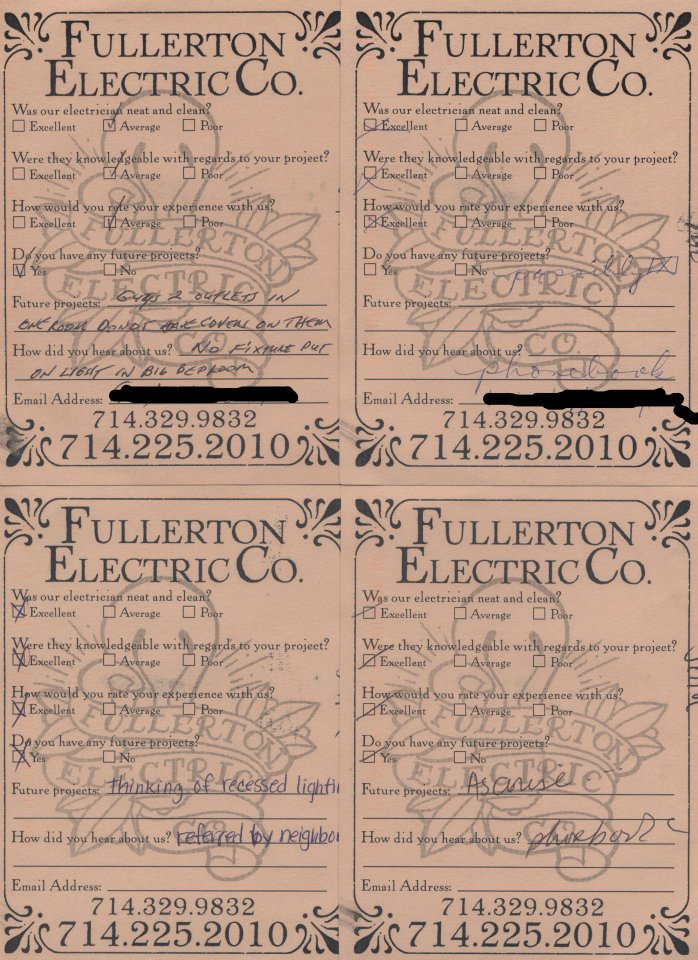 FULLERTON
ELECTRIC CO.
Was our electrician neat and clean?
Excellent Average Poor
Were they knowledgeable with regards to your project?
Excellent Average Poor
How would you rate your experience with us?
Excellent Average Poor
Do you have any future projects?
Yes No
Future projects: GUYS 2 OUTLETS IN
ONE ROOM DO NOT HAVE COVERS ON THEM
How did you hear about us? NO FIXTURE PUT
ON LIGHT IN BIG BEDROOM
Email Address:
714.329.9832
714.225.2010
FULLERTON
ELECTRIC
CO.
FULLERTON
ELECTRIC CO.
Was our electrician neat and clean?
Excellent Average Poor
Were they knowledgeable with regards to your project?
Excellent Average Poor
How would you rate your experience with us?
Excellent Average Poor
Do you have any future projects?
Yes No possibly
Future projects:
How did you hear about us?
phonebook
Email Address:
714.329.9832
714.225.2010
FULLERTON
ELECTRIC
CO.
FULLERTON
ELECTRIC CO.
Was our electrician neat and clean?
Excellent Average Poor
Were they knowledgeable with regards to your project?
Excellent Average Poor
How would you rate your experience with us?
Excellent Average Poor
Do you have any future projects?
Yes No
Future projects: thinking of recessed lighti
How did you hear about us? referred by neighbo
Email Address:
714.329.9832
714.225.2010
FULLERTON
ELECTRIC
CO.
FULLERTON
ELECTRIC CO.
Was our electrician neat and clean?
Excellent Average Poor
Were they knowledgeable with regards to your project?
Excellent Average Poor
How would you rate your experience with us?
Excellent Average Poor
Do you have any future projects?
Yes No
Future projects: As arise
How did you hear about us? phonebook
Email Address:
714.329.9832
714.225.2010
FULLERTON
ELECTRIC
CO.